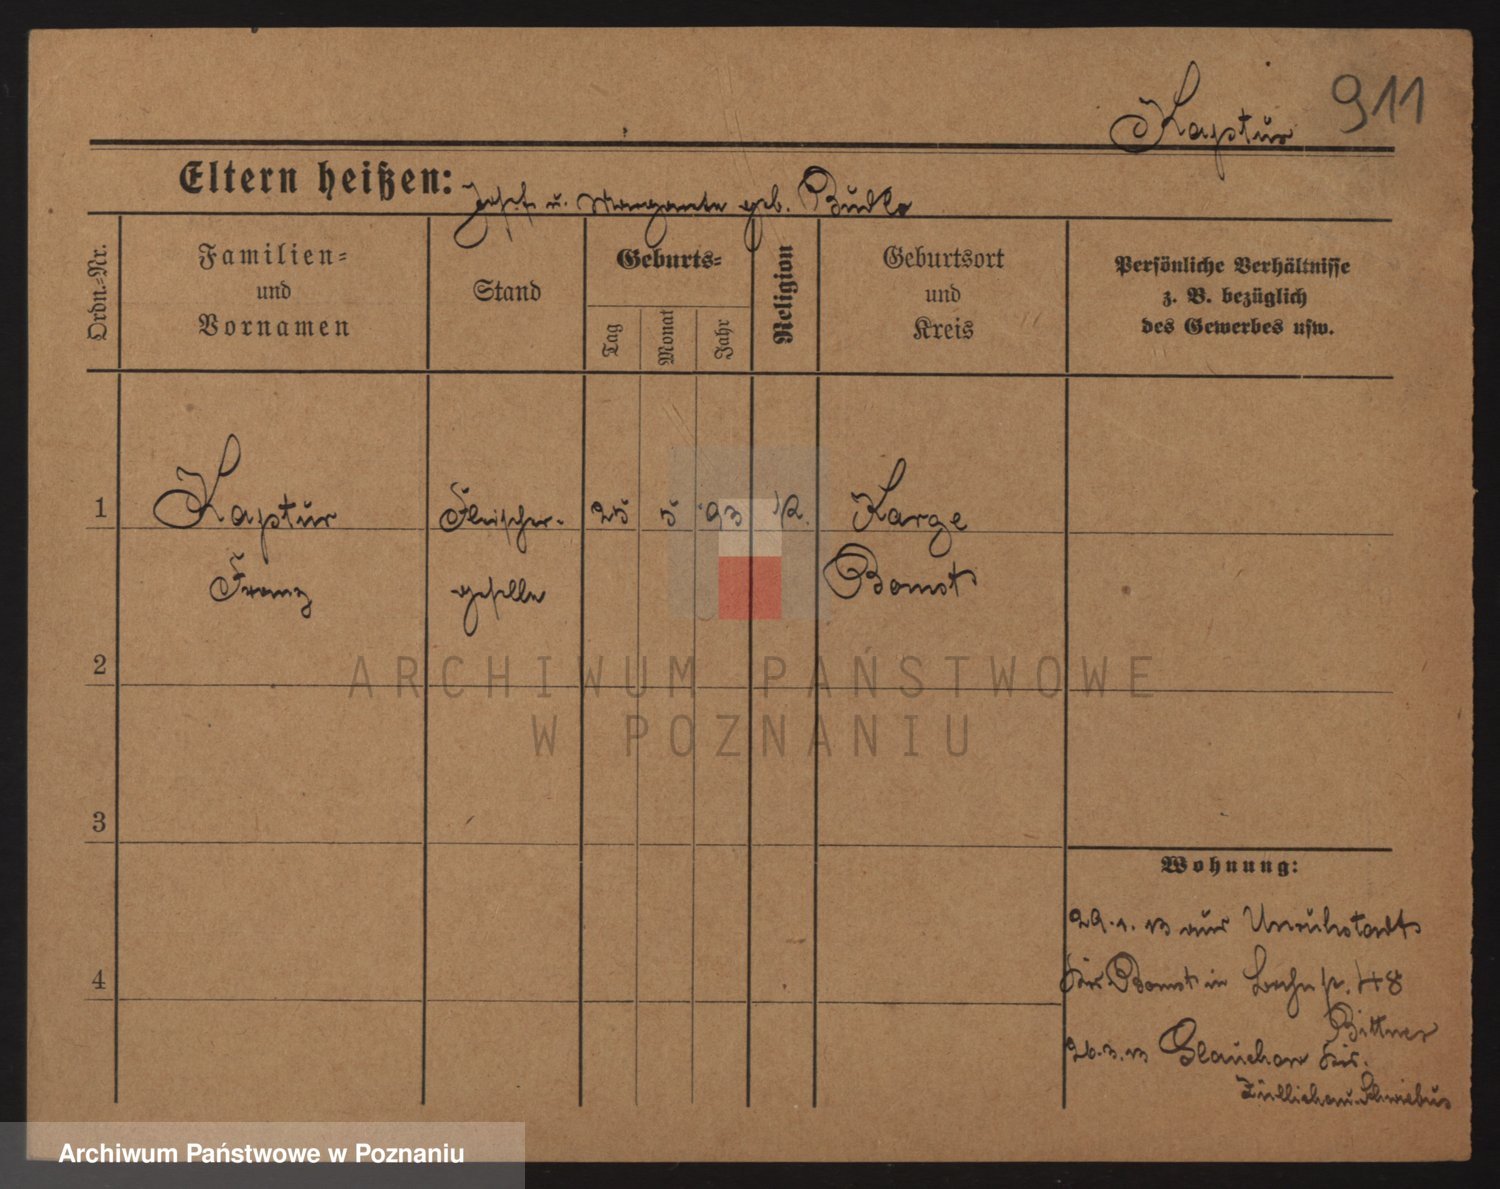 911
Kaptur
Eltern heißen: Josef u. Margarete geb. Budke
Ordn.-Nr.
Familien-
und
Vornamen
Stand
Geburts-
Tag
Monat
Jahr
Religion
Geburtsort
und
Kreis
Persönliche Verhältnisse
z. B. bezüglich
des Gewerbes usw.
1 Kaptur Fleischer- 25 5 93 k. Karge
Franz geselle Bomst
2
3
4
Wohnung:
29.1.13 aus Unruhstadt
Krs. Bomst in 48
Bittner
26.3.13 Glauchow Krs.
Züllichau-Schwiebus
ARCHIWUM PAŃSTWOWE
W POZNANIU
Archiwum Państwowe w Poznaniu